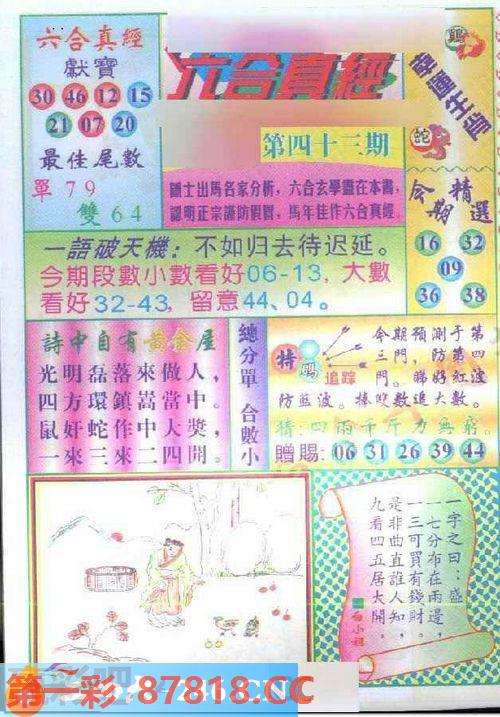 六合真經
獻寶
30 46 12 15
21 07 20
最佳尾數
單79
雙64
六合真經
第四十三期
隱士出馬名家分析，六合玄學靈在本書，
認明正宗謹防假冒，馬年佳作六合真經。
蛇
今期
精選
16 32
09
36 38
一語破天機：不如归去待迟延。
今期段數小數看好06-13，大數
看好32-43，留意44、04。
詩中自有黃金屋
光明磊落來做人，
四方環鎮嵩當中。
鼠奸蛇作中大獎，
一來三來二四開。
總分單 合數小
特碼
追踪
今期預測于第
三門，防第四
門。睇好紅波
防藍波。捧雙數追大數。
猜：四兩千斤力無窮。
贈賜：06 31 26 39 44
一字之曰：盛
一七分布在兩邊，
一三可買有錢財，
是非曲直誰人知，
九看四五居大開。
第一彩 87818.CC